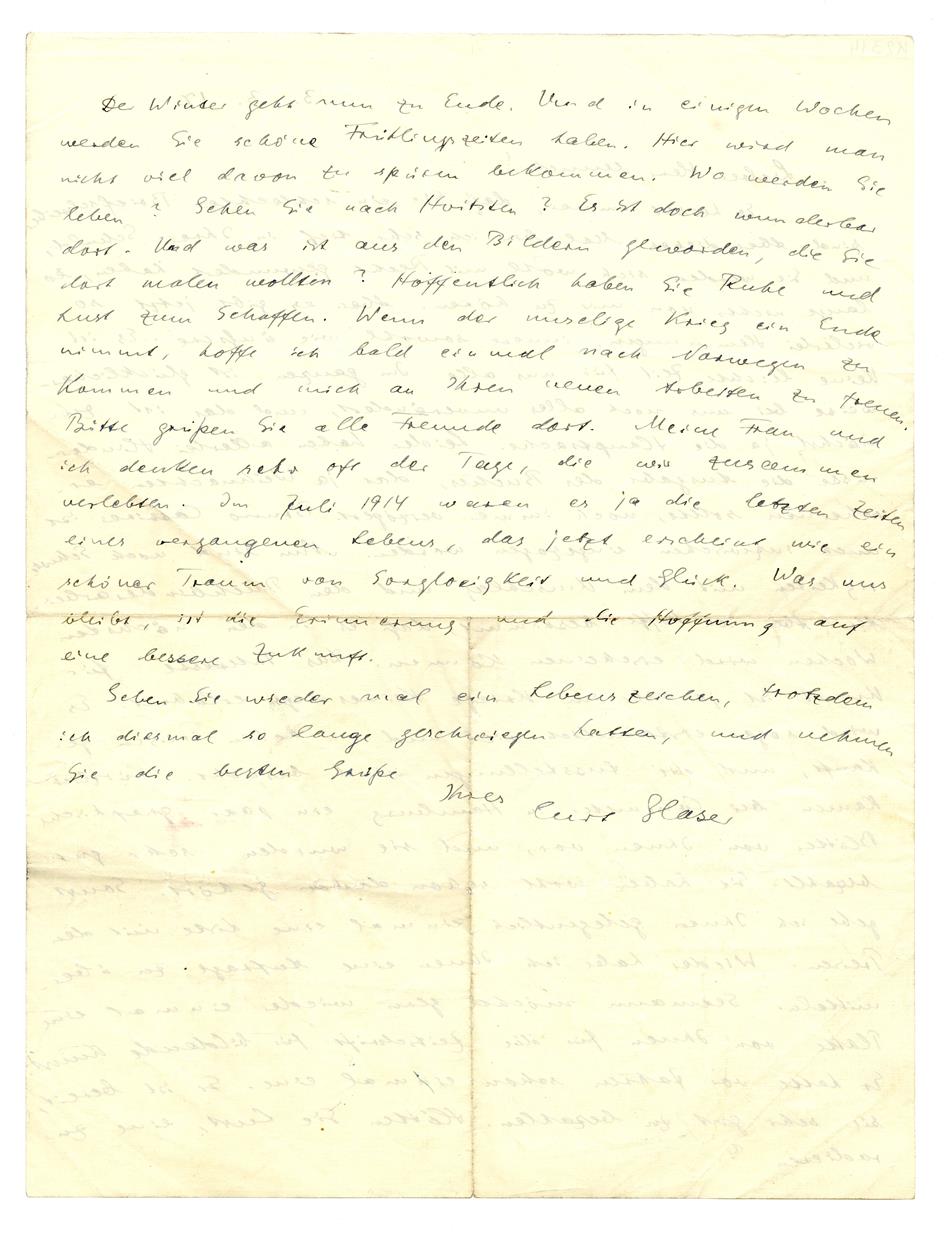 Der Winter geht nun zu Ende. Und in einigen Wochen
werden Sie schöne Frühlingszeiten haben. Hier wird man
nicht viel davon zu spüren bekommen. Wo werden Sie
leben? Gehen Sie nach Hvitsten? Es ist doch wunderbar
dort. Und was ist aus den Bildern geworden, die Sie
dort malen wollten? Hoffentlich haben Sie Ruhe und
Lust zum Schaffen. Wenn der unselige Krieg ein Ende
nimmt, hoffe ich bald einmal nach Norwegen zu
kommen und mich an Ihren neuen Arbeiten zu freuen.
Bitte grüßen Sie alle Freunde dort. Meine Frau und
ich denken sehr oft der Tage, die wir zusammen
verlebten. Im Juli 1914 waren es ja die letzten Zeiten
eines vergangenen Lebens, das jetzt erscheint wie ein
schöner Traum von Sorglosigkeit und Glück. Was uns
bleibt, ist die Erinnerung und die Hoffnung auf
eine bessere Zukunft.
Geben Sie wieder mal ein Lebenszeichen, trotzdem
ich diesmal so lange geschwiegen hatten, und nehmen
Sie die besten Grüße
Ihres
Curt Glaser